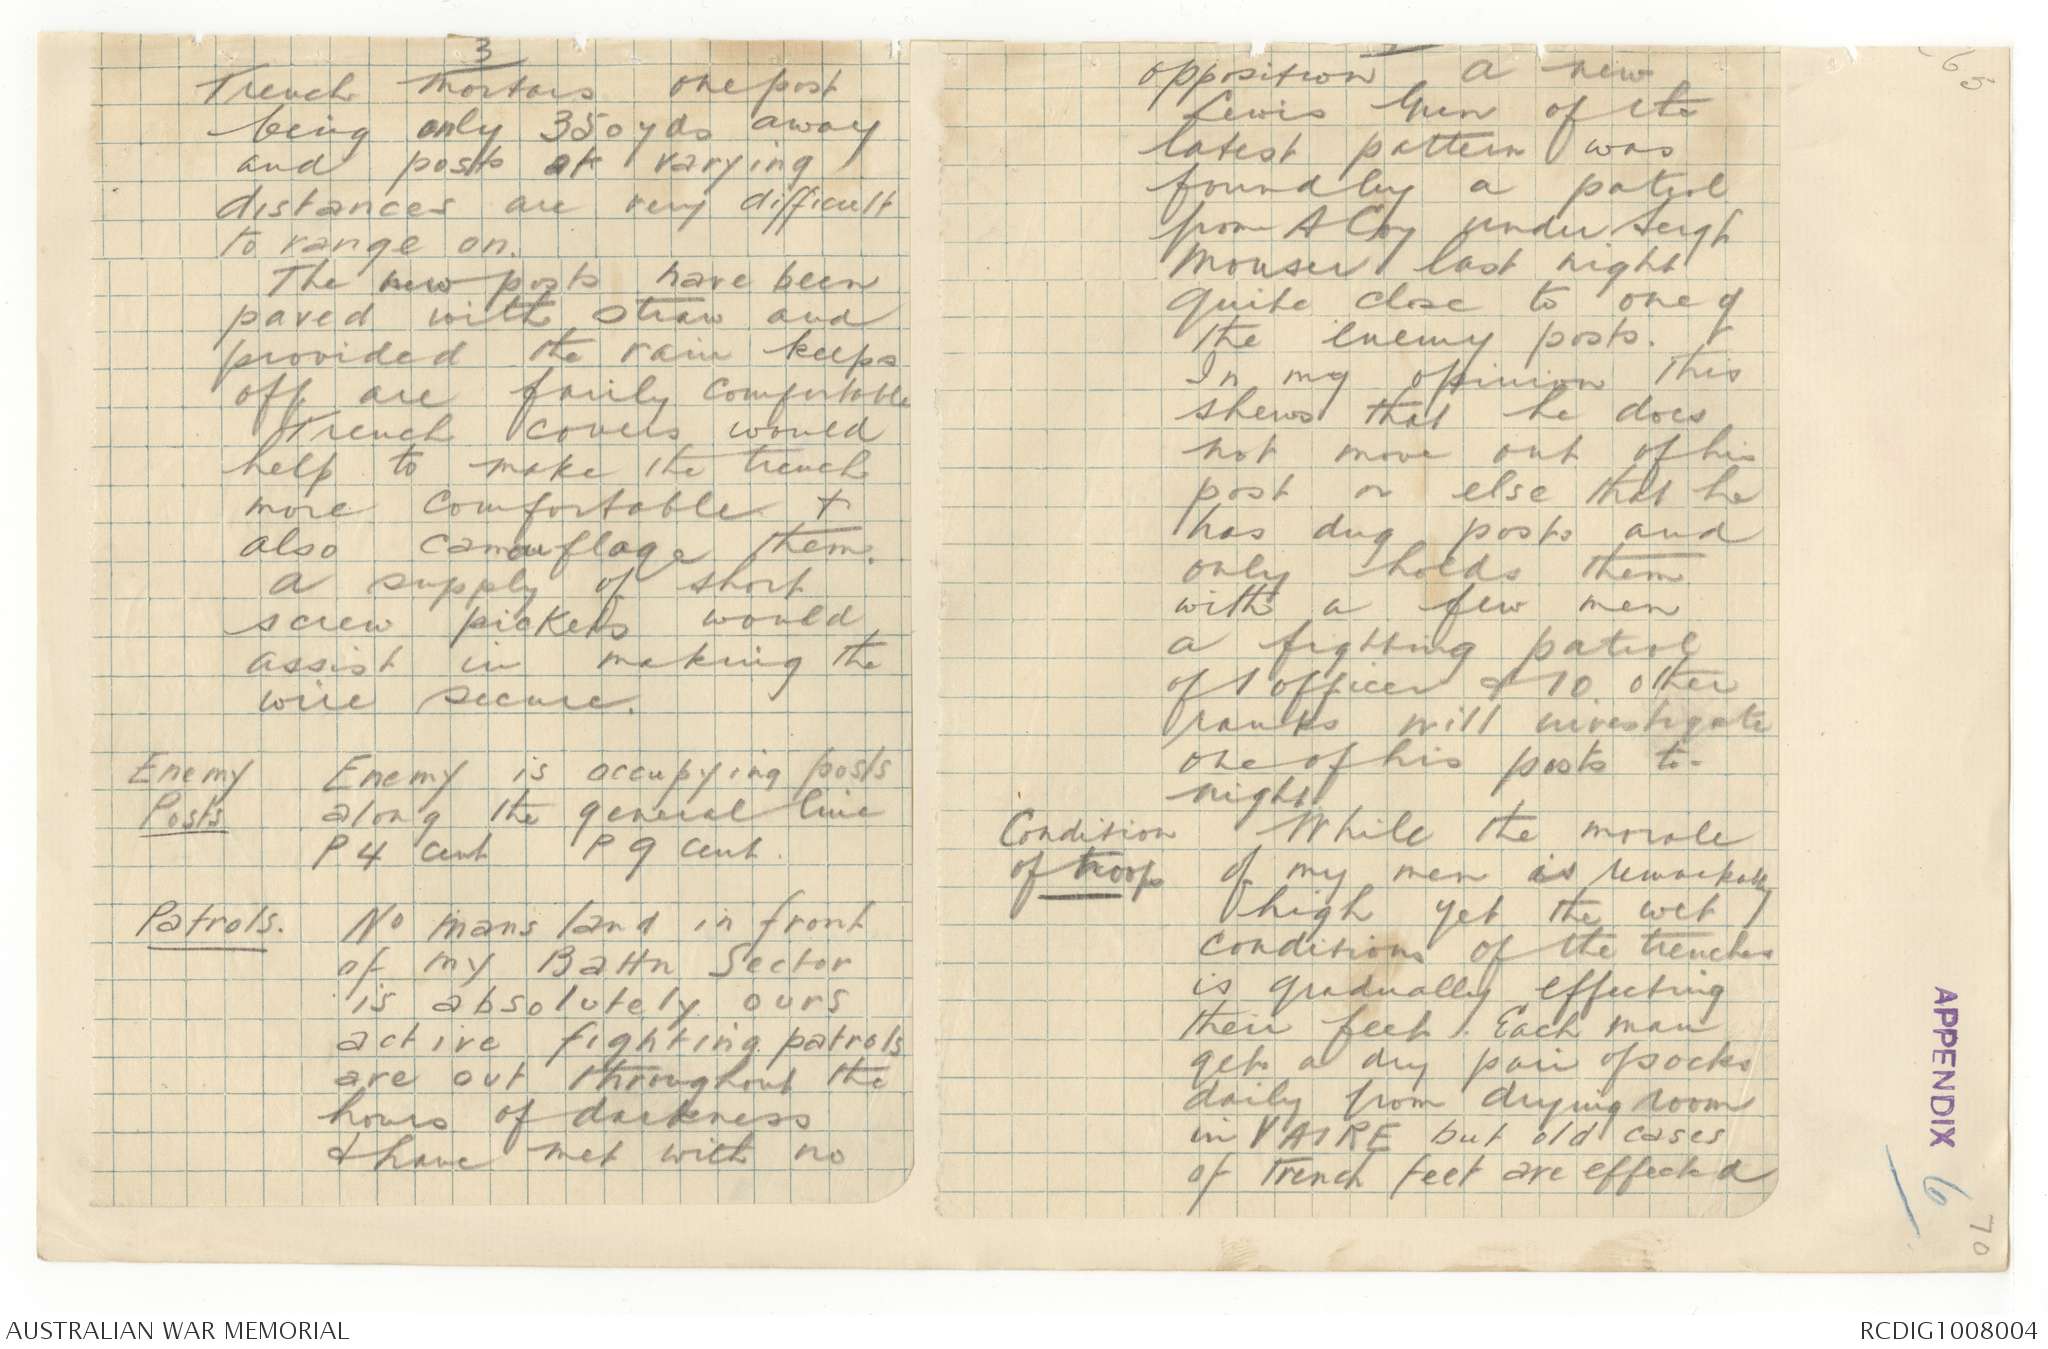 3
Trench Mortars one post
being only 350 yds away
and posts at varying
distances are very difficult
to range on.
The new posts have been
paved with straw and
provided the rain keeps
off are fairly comfortable
Trench covers would
help to make the trench
more comfortable +
also camouflage them.
A supply of short
screw pickets would
assist in making the
wire secure.
Enemy Posts
Enemy is occupying posts
along the general line
P 4 cent P 9 cent.
Patrols.
No mans land in front
of my Battn Sector
is absolutely ours
active fighting patrols
are out throughout the
hours of darkness
& have met with no
opposition A new
Lewis Gun of the
latest pattern was
found by a patrol
from A Coy under Sergt
Mouser last night
quite close to one of
the enemy posts.
In my opinion this
shews that he does
not move out of his
post or else that he
has dug posts and
only holds them
with a few men
A fighting patrol
of 1 officer & 10 other
ranks will investigate
one of his posts to-
night
Condition of troops
While the morale
of my men is remarkably
high yet the wet
conditions of the trenches
is gradually effecting
their feet. Each man
gets a dry pair of socks
daily from drying room
in VAIRE but old cases
of trench feet are effected
65
APPENDIX 6
70
AUSTRALIAN WAR MEMORIAL
RCDIG1008004